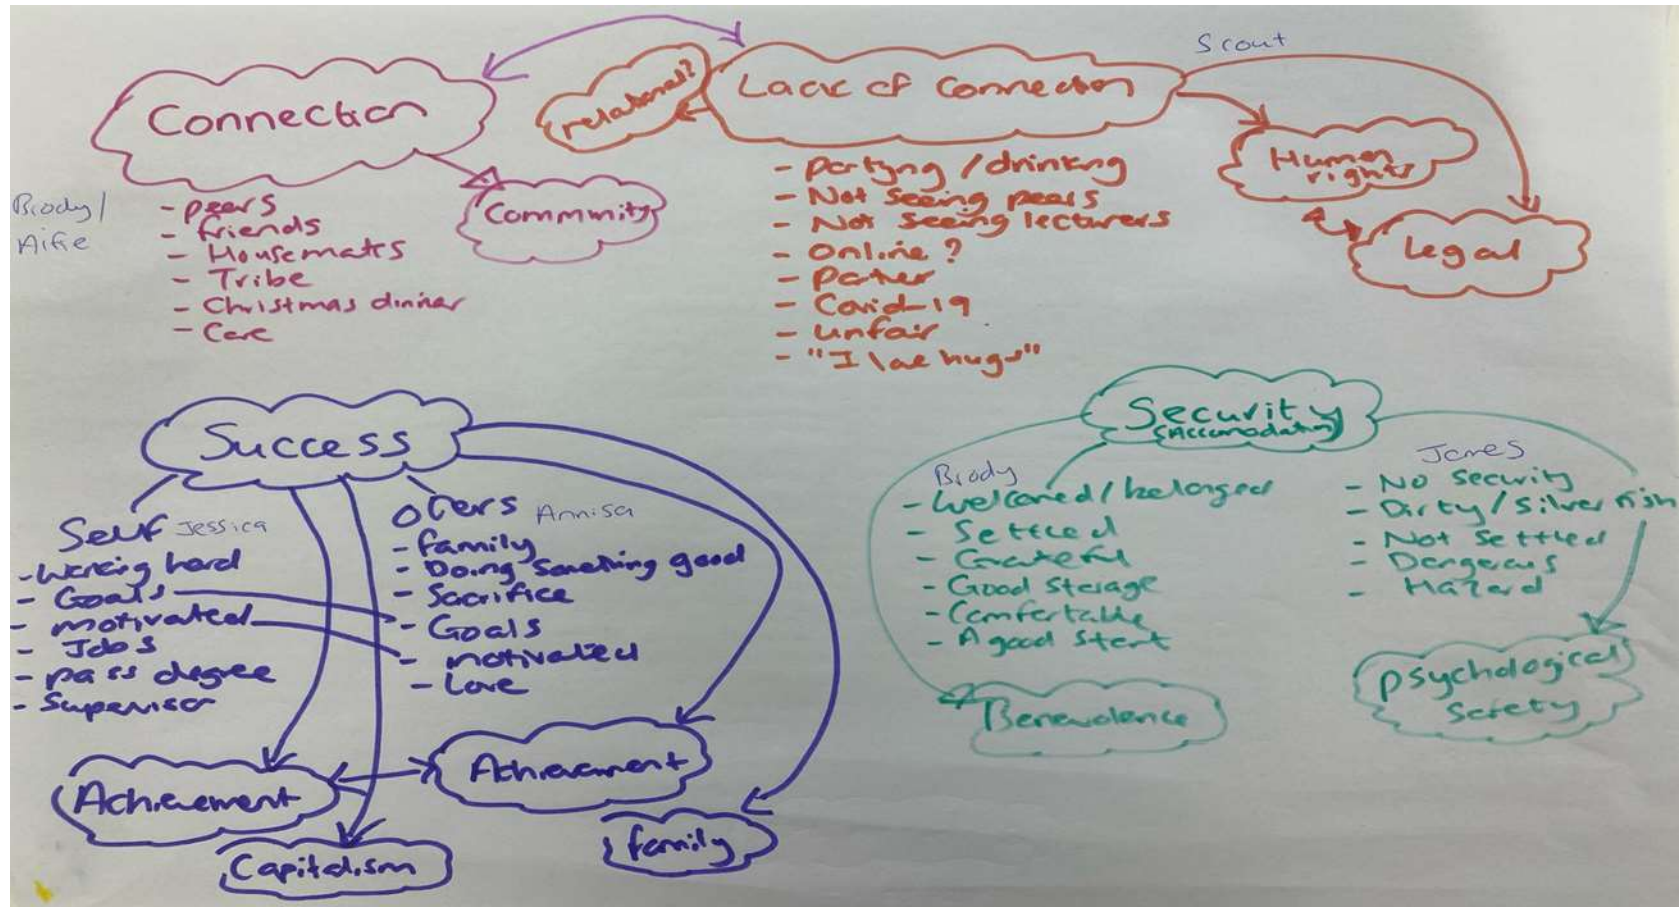 Connection
Brody/
Alfie
- peers
- friends
- Housemates
- Tribe
- Christmas dinner
- Care
Community
relational?
Lack of connection
Scout
- partying / drinking
- Not seeing peers
- Not seeing lecturers
- Online?
- Covid-19
- unfair
- "I love hugs"
Human
rights
Legal
Success
Self Jessica
- Working hard
- Goals
- motivated
- Jobs
- pass degree
- Supervisor
Others Annisa
- family
- Doing something good
- Sacrifice
- Goals
- motivated
- Love
Achievement
Achievement
Capitalism
family
Security
(Accomodation)
Brody
- Welcomed/belonged
- Settled
- Grateful
- Good storage
- Comfortable
- A good start
Benevolence
James
- No security
- Dirty / Silver fish
- Not settled
- Dangerous
- Hazard
psychological
safety